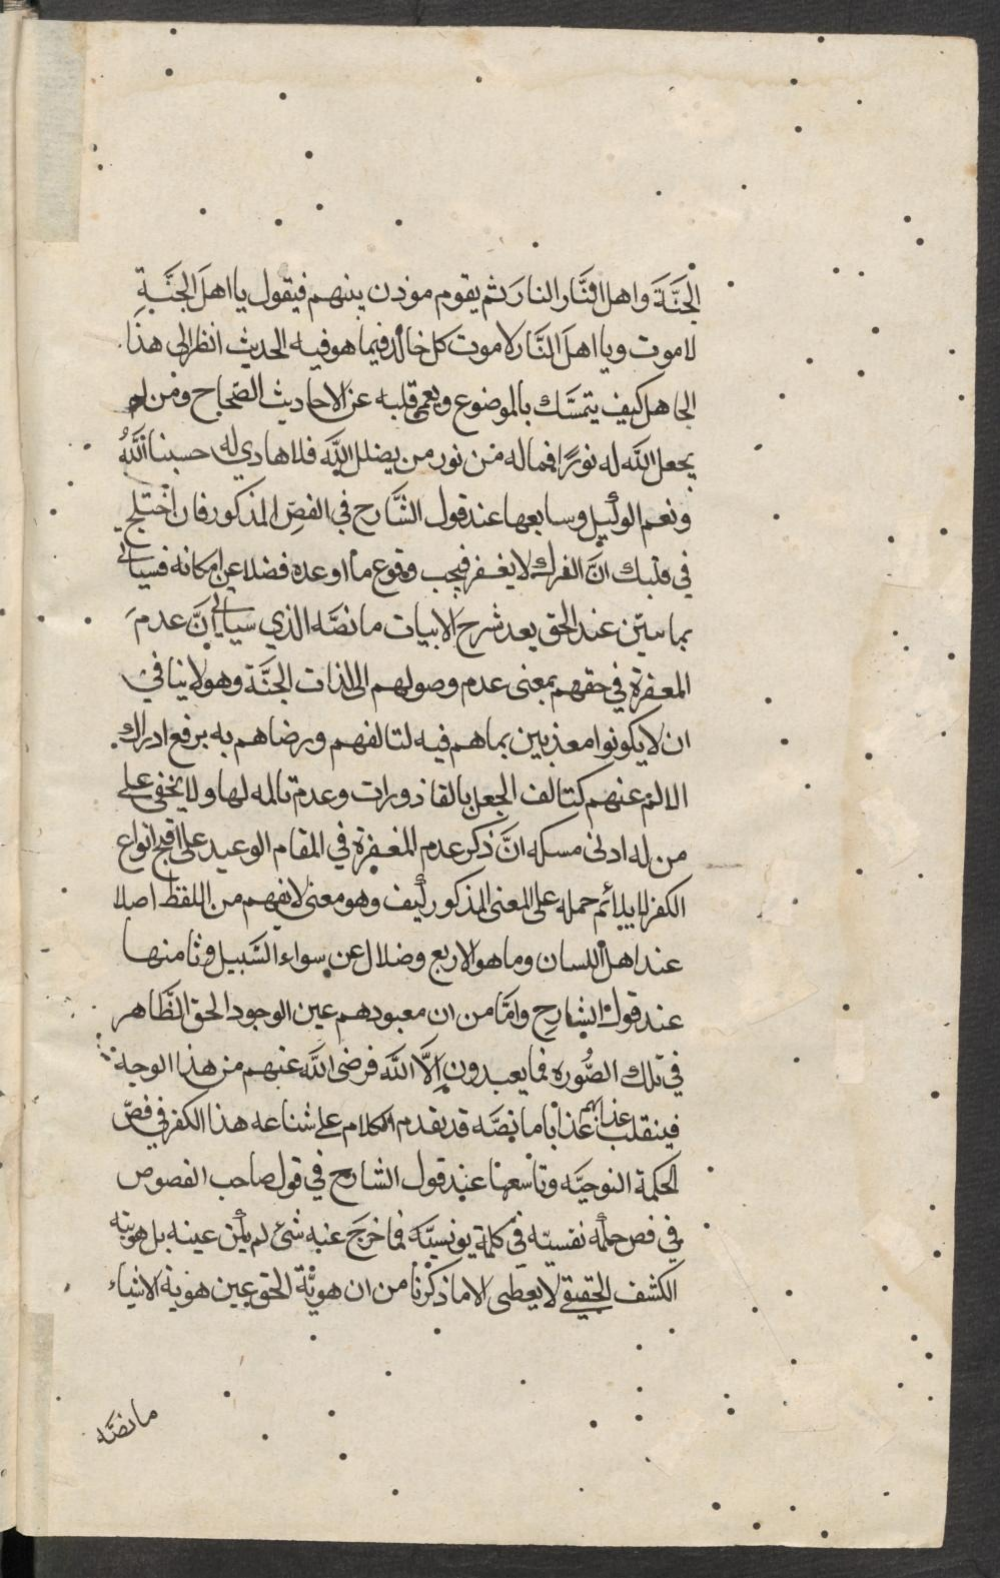 الجنَّةَ واهل النَّار النارَ ثم يقوم موذن بينهم فيقول يا اهلَ الجنَّةِ
لا موت ويا اهلَ النَّار لا موت كل خالد فيما هو فيه الحديث انظر الى هذا
الجاهل كيف يتمسَّك بالموضوع ويعمى قلبه عن الاحاديث الصّحاح ومن لم
يجعل اللّه له نورًا فما له من نور من يضلل اللّه فلا هادي له حسبنا اللّهُ
ونعم الوكيل وسابعها عند قول الشَّارح في الفصّ المذكور فان اختلج
في قلبك انَّ الشرك لا يغفر فيجب وقوع ما اوعده فضلا عن امكانه فسياتى
بما سيّن عند الحق بعد شرح الابيات ما نصَّه الذي سياتى انَّ عدمَ
المغفرة في حقهم بمعنى عدم وصولهم الى لذات الجنَّة وهو لا ينافي
ان لا يكونوا معذبين بما هم فيه لتالفهم ورضاهم به برفع ادراك
الالم عنهم كتالف الجعل بالقاذورات وعدم تالمه لها ولا يخفى على
من له ادنى مسكه انَّ ذكر عدم المغفرة في المقام الوعيد على اقبح انواع
الكفر لا يلائم حمله على المعنى المذكور كيف وهو معنى لا يفهم من اللفظ اصلا
عند اهل اللسان وما هو الا ربع وضلال عن سواء السَّبيل وثامنها
عند قول الشارح وامَّا من ان معبودهم عين الوجود الحق الظَّاهر
في تلك الصُّوره فما يعبدون الَّا اللّه فرضى اللّه عنهم من هذا الوجه
فينقلب عذابهم عذابا ما نصَّه قد تقدم الكلام على شناعه هذا الكفر في فصّ
الحكمة النوحيَّه وتاسعها عند قول الشارح في قول صاحب الفصوص
في فص حكمة نفسيّه في كلمة يونسيّه فما خرجَ عنه شئ لم يكن عينه بل هويته
الكشف الحقيقى لا يعطى الا ما ذكرنا من ان هويَّة الحق عين هوية الاشياء
ما نصَّه